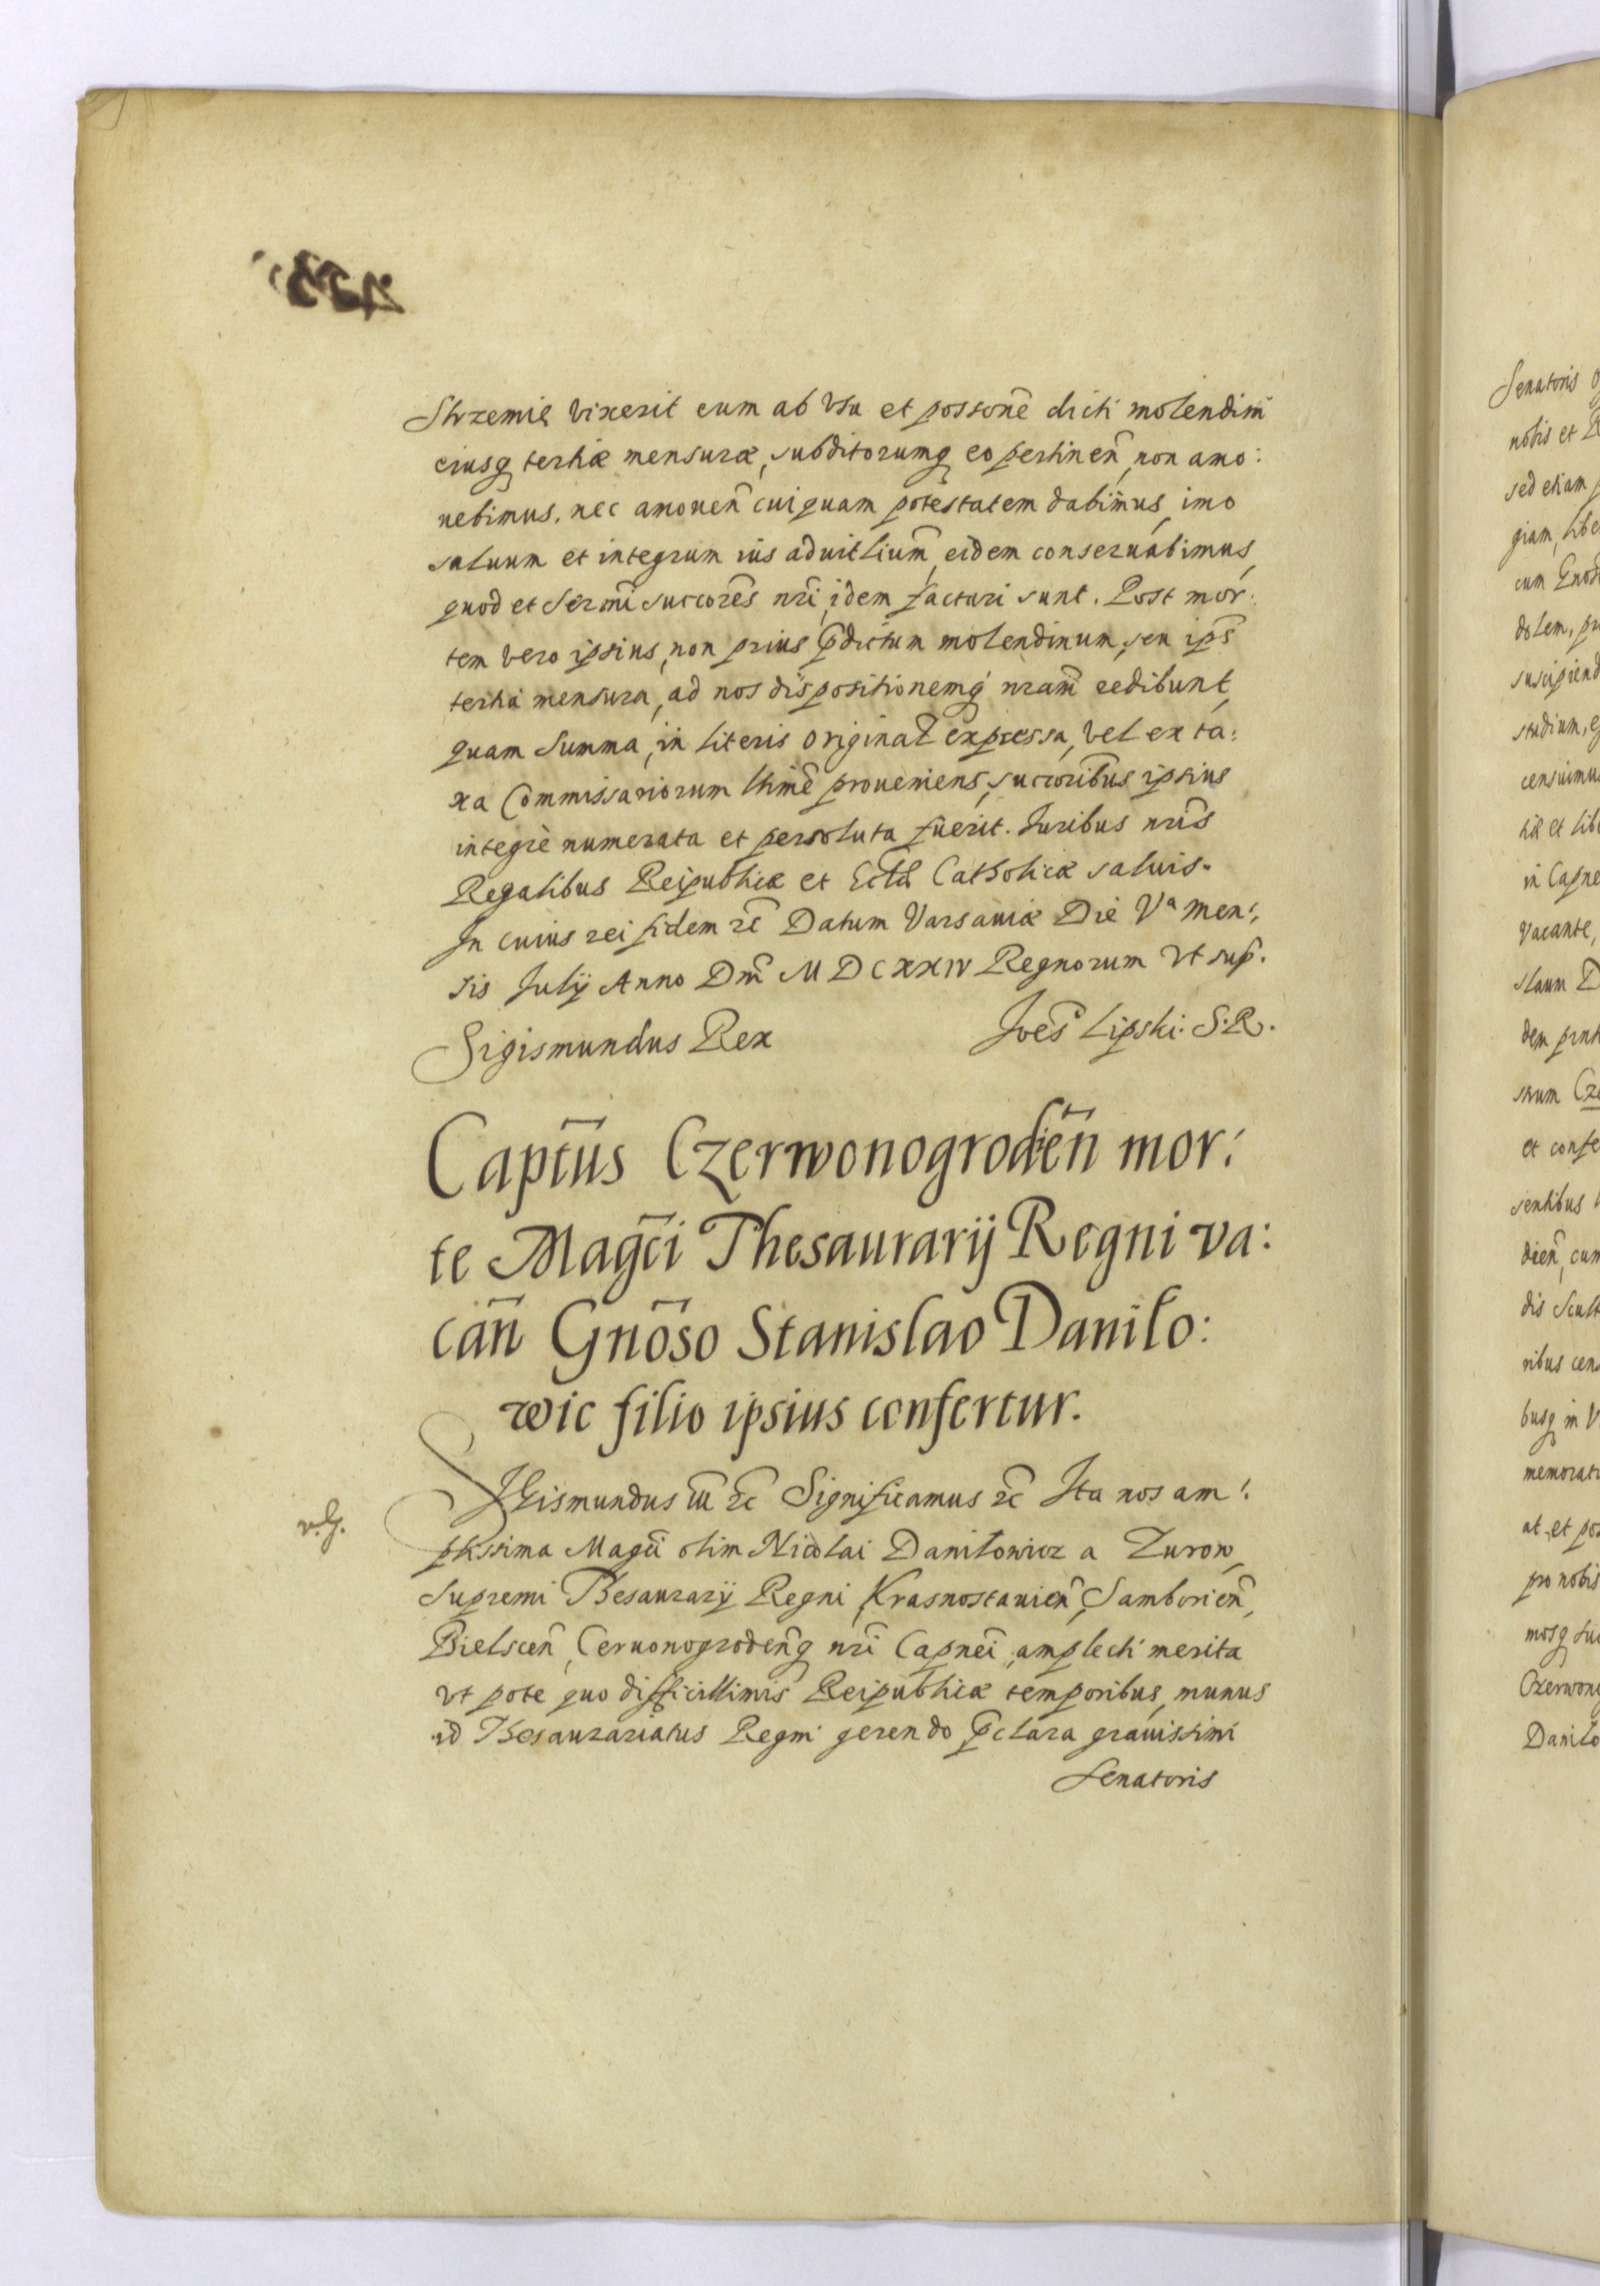 Strzemię vixerit eum ab vsu et possone dicti molendini
eiusq tertiæ mensuræ, subditorumq eo pertinen, non amo:
uebimus, nec amouen cuiquam potestatem dabimus, imo
saluum et integrum ius aduitlium, eidem conseruabimus,
quod et Sermi succores nri, idem facturi sunt. Post mor:
tem vero ipsius, non prius pdictum molendinum, seu ips
tertia mensura, ad nos dispositionemq nram redibunt,
quam Summa, in literis original expressa, vel ex ta:
xa Commissariorum ltime proueniens, succoribus ipsius
integrè numerata et persoluta fuerit. Juribus nris
Regalibus Reipublicæ et Eccl Catholicæ saluis.
In cuius rei fidem rc Datum Varsauiæ Die Va Men:
sis Julÿ Anno Dni MDCXXIV Regnorum vt sup.
Sigismundus Rex
Joes Lipski. S.R.
Captus Czerwonogroden mor:
te Magci Thesaurarij Regni va:
can Gnoso Stanislao Danilo:
wic filio ipsius confertur.
SIGismundus III rc Significamus rc Ita nos am:
plissima Magci olim Nicolai Daniłowicz a Zurow,
Supremi Thesaurarÿ Regni, Krasnostauien, Samborien,
Bielscen, Ceruonogrodenq nri Capnei, amplecti merita
vt pote quo difficillimis Reipublicæ temporibus, munus
id Thesaurariatus Regni gerendo pclara grauissimi
Senatoris
Senatoris
nobis et
sed etiam
cum
dolem,
studium,
censuimus
in
Vacante,
slaum
dem
et
dis
memorat
pro nobis